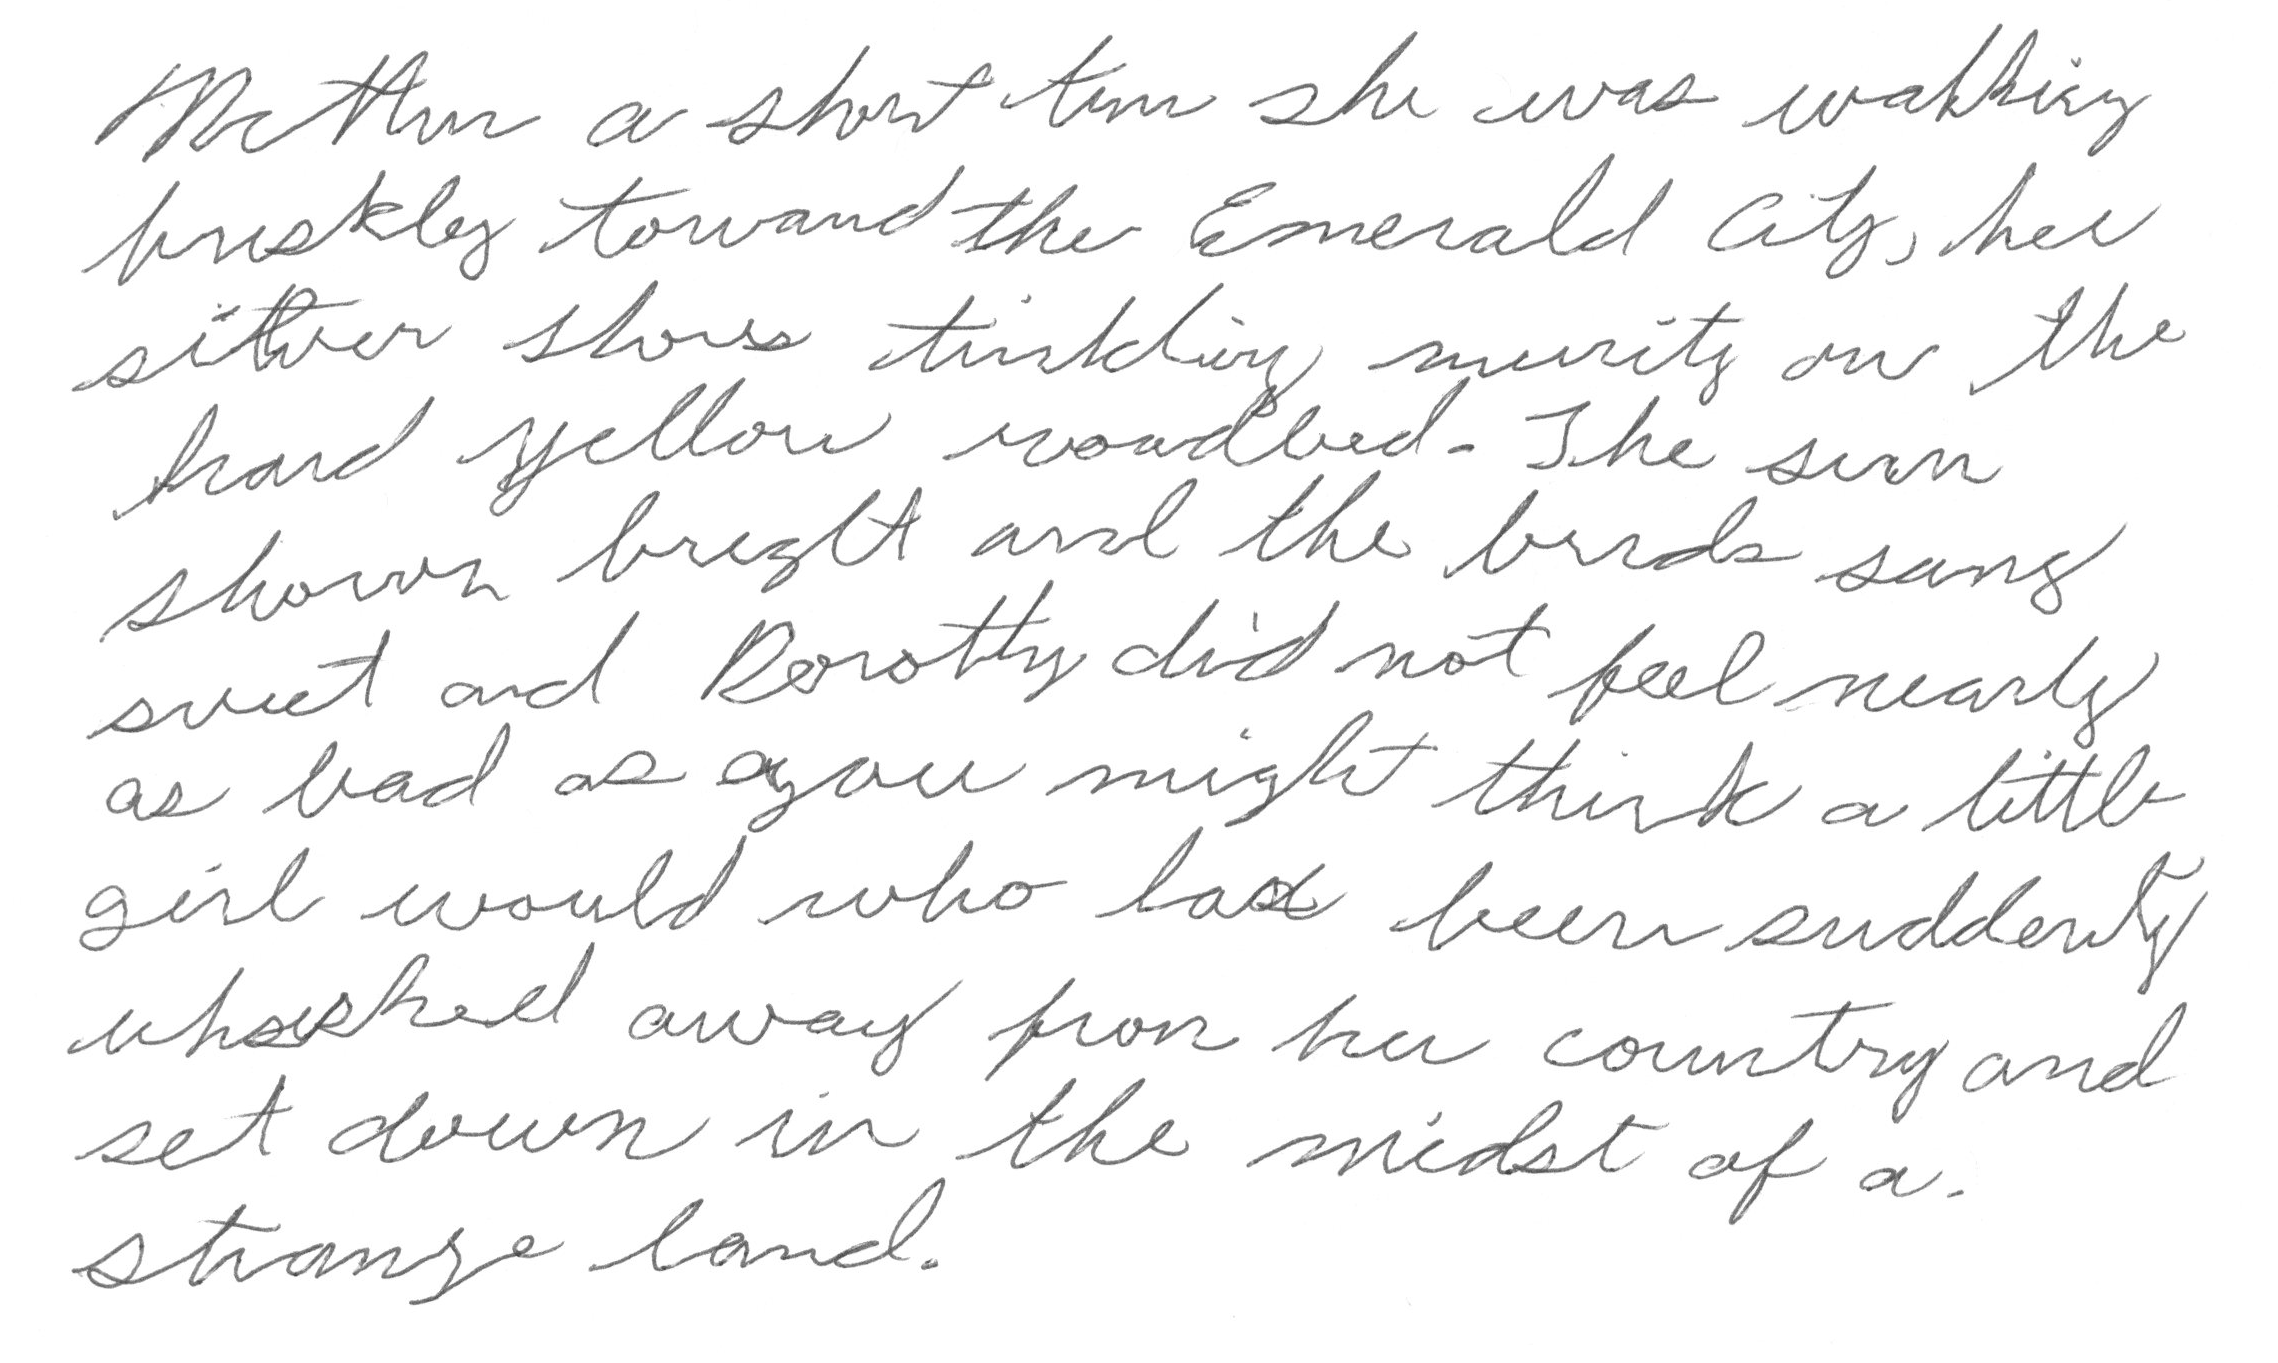 Within a short time she was walking
briskly toward the Emerald City, her
silver shoes tinkling merrily on the
hard yellow roadbed. The sun
shown bright and the birds sang
sweet and Dorothy did not feel nearly
as bad as you might think a little
girl would who had been suddenly
whisked away from her country and
set down in the midst of a.
strange land.